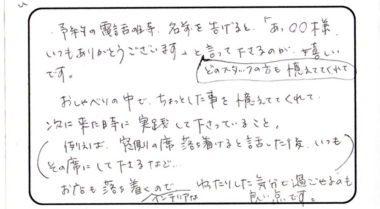 予約の電話の時、名前を告げると、「あ、〇〇様、
いつもありがとうございます」と言って下さるのが嬉しい
です。
どのスタッフの方も憶えててくれて
おしゃべりの中で、ちょっとした事を憶えててくれて、
次に来た時に実践して下さっていること。
(例えば、窓側の席落ち着けると話した後、いつも
その席にして下さるなど…)
お店も落ち着くので
インテリアは
ゆったりした気分で過ごせるのも
良い点です。